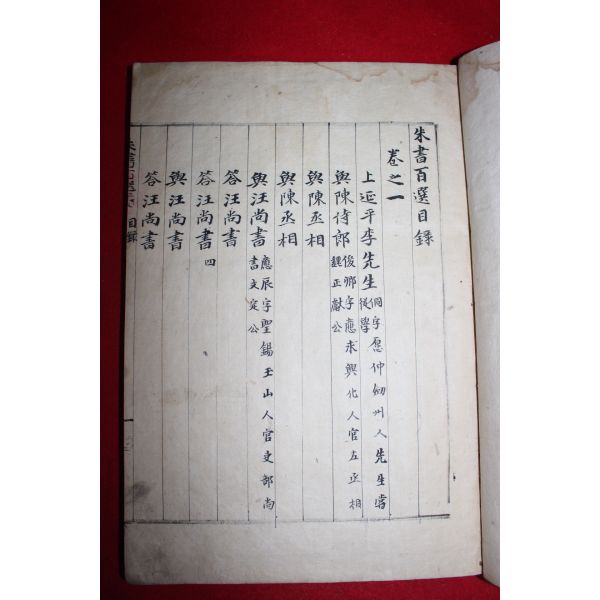 朱書百選目錄
卷之一
上延平李先生 侗字愿仲劒州人先生嘗
從學
與陳侍郎 俊卿字應求興化人官左丞相
魏正獻公
與陳丞相
與陳丞相
與汪尚書 應辰字聖錫玉山人官吏部尚
書文定公
答汪尚書
答汪尚書 四
與汪尚書
答汪尚書
朱書百選 目錄 一